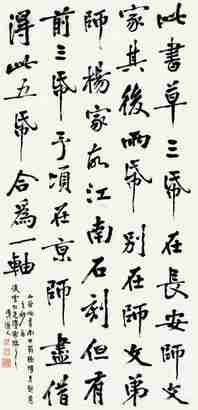 此書草三帋在長安師文
家其後兩帋別在師文弟
師楊家故江南石刻但有
前三帋予頃在京師盡借
得此五帋合為一軸